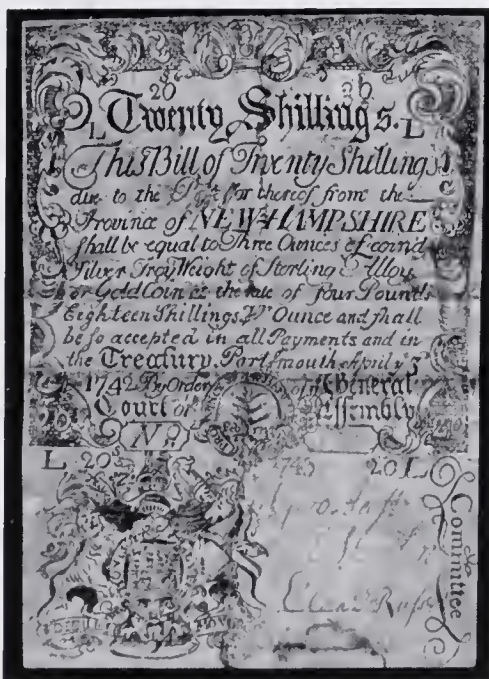 20 20
L Twenty Shillings. L
This Bill of Twenty Shillings
due to the thereof from the
Province of NEW HAMPSHIRE
shall be equal to Three Ounces of coind
Silver Troy Weight of Sterling Alloy
or Gold Coin at the rate of four Pounds
Eighteen Shillings Ounce and shall
be so accepted in all Payments and in
the Treasury. Portsmouth April
1742 By Order of General
Court or Assembly
No
L 20s 1743 20 L
Committee